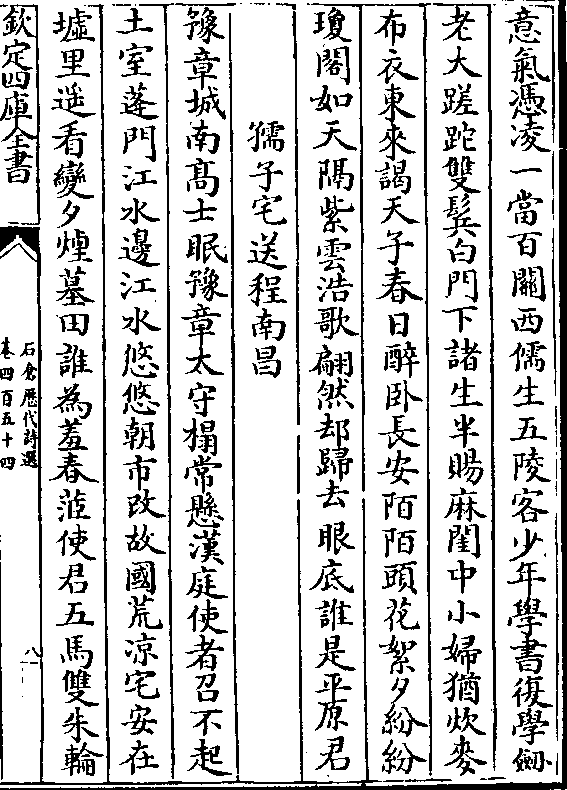 意氣憑凌一當百關西儒生五陵客少年學書復學劔
老大蹉跎雙鬂白門下諸生半賜麻閨中小婦猶炊麥
布衣東來謁天子春日醉卧長安陌陌頭花絮夕紛紛
瓊閣如天隔紫雲浩歌翩然却歸去眼底誰是平原君
孺子宅送程南昌
豫章城南髙士眠豫章太守榻常懸漢庭使者召不起
土室蓬門江水邊江水悠悠朝市改故國荒凉宅安在
墟里遥看變夕煙墓田誰為羞春蒞使君五馬雙朱輪
欽定四庫全書
石倉歷代詩選
卷四百五十四
八